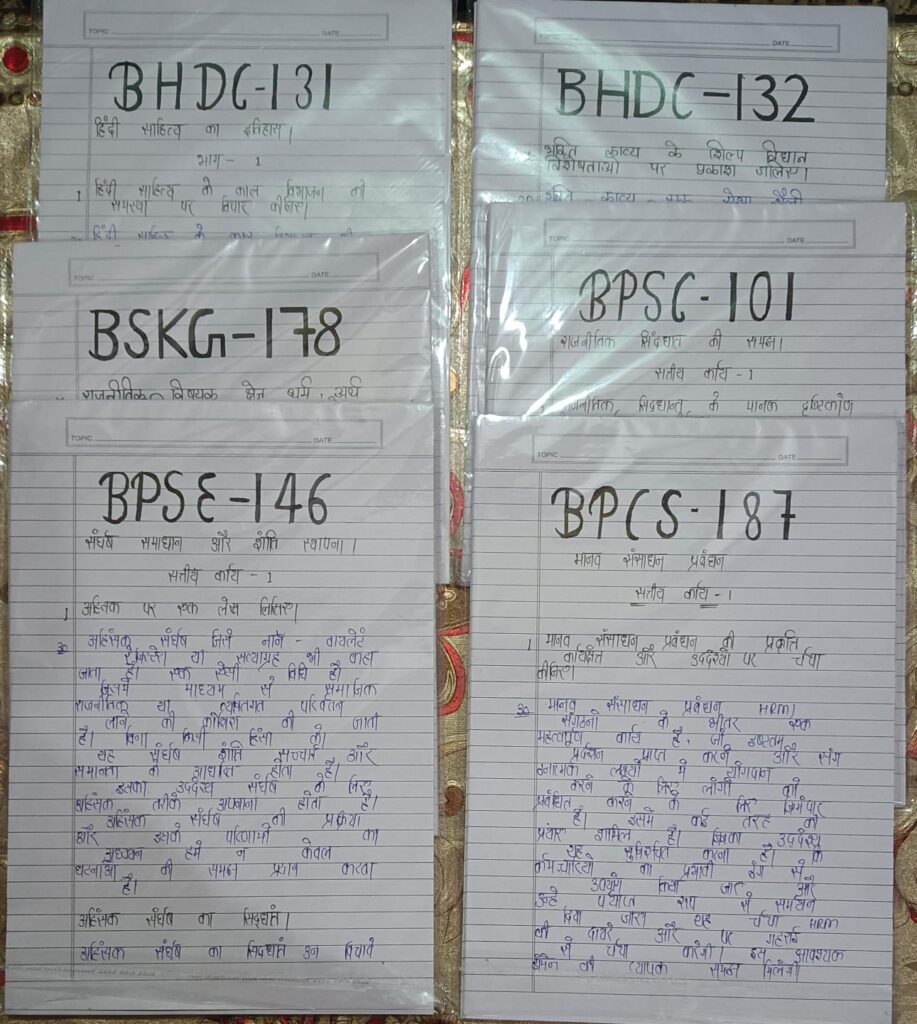 TOPIC DATE
BHDC-131
हिंदी साहित्य का इतिहास।
भाग - 1
1 हिंदी साहित्य के काल विभाजन की
समस्या पर विचार कीजिए।
हिंदी साहित्य के काल
TOPIC DATE
BHDC-132
भक्ति काव्य के शिल्प विधान
विशेषताओं पर प्रकाश डालिए।
भक्ति काव्य
TOPIC DATE
BSKG-178
राजनीतिक विषयक क्षेत्र धर्म, अर्थ
TOPIC DATE
BPSC-101
राजनीतिक सिंद्धात की समझ।
सत्तीय कार्य - 1
राजनीतिक सिद्धान्त के मानक दृष्टिकोण
TOPIC DATE
BPSE-146
संर्घष समाधान और शांति स्थापना।
सत्तीय कार्य - 1
1 अहिंसक पर एक लेख लिखिए।
अहिंसक संर्घष जिसे नान - वायलेंट
या सत्याग्रह भी कहा
जाता है। एक ऐसी विधि है।
जिसमें माध्यम से समाजिक
राजनीतिक या व्यक्तिगत परिवर्तन
लाने की कोशिश की जाती
है। बिना किसी हिंसा की।
यह संर्घष शांति सच्चाई और
समानता के आधारित होता है।
इसका उददेश्य संर्घष के लिए
अहिंसक तरीके अपनाना होता है।
अहिंसक संर्घष की प्रक्रिया
और इसके परिणामों का
अध्ययन हमें न केवल
घटनाओं की समझ प्रदान करता
है।
अहिंसक संर्घष का सिद्धतं।
अहिंसक संर्घष का सिद्धतं उन विचारों
TOPIC DATE
BPCS-187
मानव संसाधन प्रबंधन
सत्तीय कार्य - 1
1 मानव संसाधन प्रबंधन की प्रकृति
और उददेश्यों पर र्चचा
कीजिए।
मानव संसाधन प्रबंधन HRM।
संगठनों के भीतर एक
महत्वपूर्ण कार्य है, जो
प्रर्दशन प्राप्त करने और संग
ठनात्मक लक्ष्यों में योगदान
करने के लिए लोगों को
प्रबंधित करने के लिए जिम्मेदार
है। इसमें कई तरह की
शामिल है। जिसका उददेश्य
यह सुनिश्चित करना है। कि
र्कमचारियों का प्रभावी ढंग से
उपयोग किया जाए और
उन्हें पर्याप्त रूप से
दिया जाए। यह र्चचा HRM
की दायरे और पर गहराई
से र्चचा करेगी। इस आवश्यक
की व्यापक समझ मिलेगी